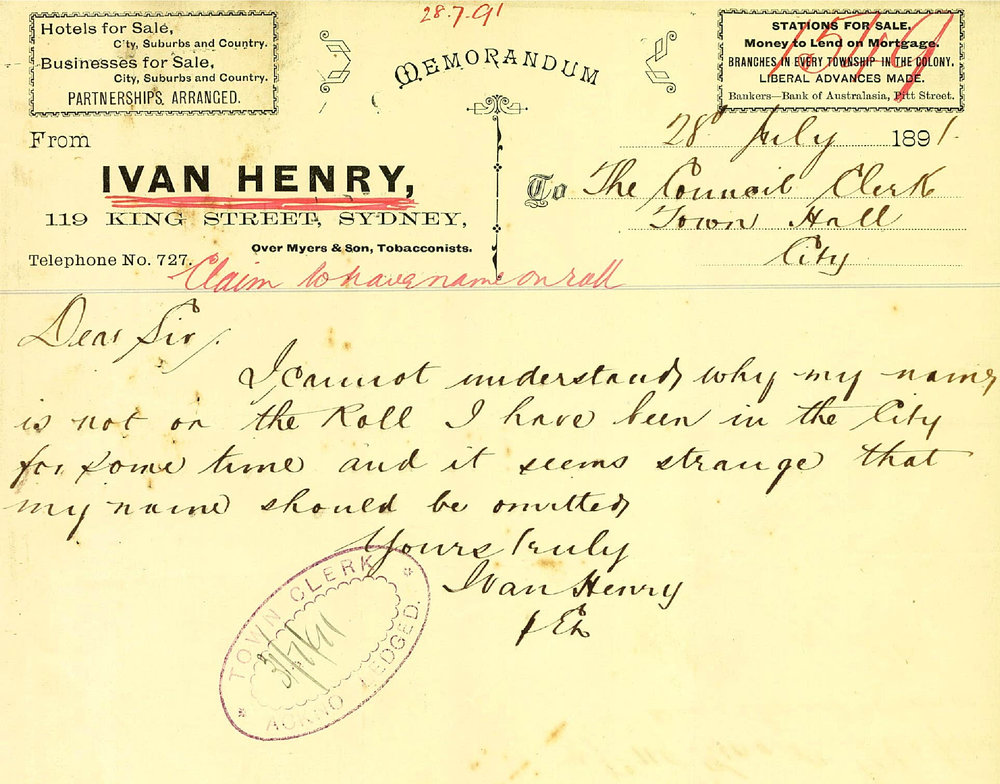 28.7.91
Hotels for Sale,
City, Suburbs and Country.
Businesses for Sale,
City, Suburbs and Country.
PARTNERSHIPS ARRANGED.
MEMORANDUM
STATIONS FOR SALE,
Money to Lend on Mortgage.
BRANCHES IN EVERY TOWNSHIP IN THE COLONY.
LIBERAL ADVANCES MADE.
Bankers—Bank of Australasia, Pitt Street.
From
IVAN HENRY,
119 KING STREET, SYDNEY,
Over Myers & Son, Tobacconists.
Telephone No. 727.
28 July 1891.
To The Council Clerk
Town Hall
City
Claim to have name on roll
Dear Sir,
I cannot understand why my name
is not on the Roll I have been in the City
for some time and it seems strange that
my name should be omitted
Yours truly
Ivan Henry
TOWN CLERK
31/7/91
ACKNOWLEDGED.